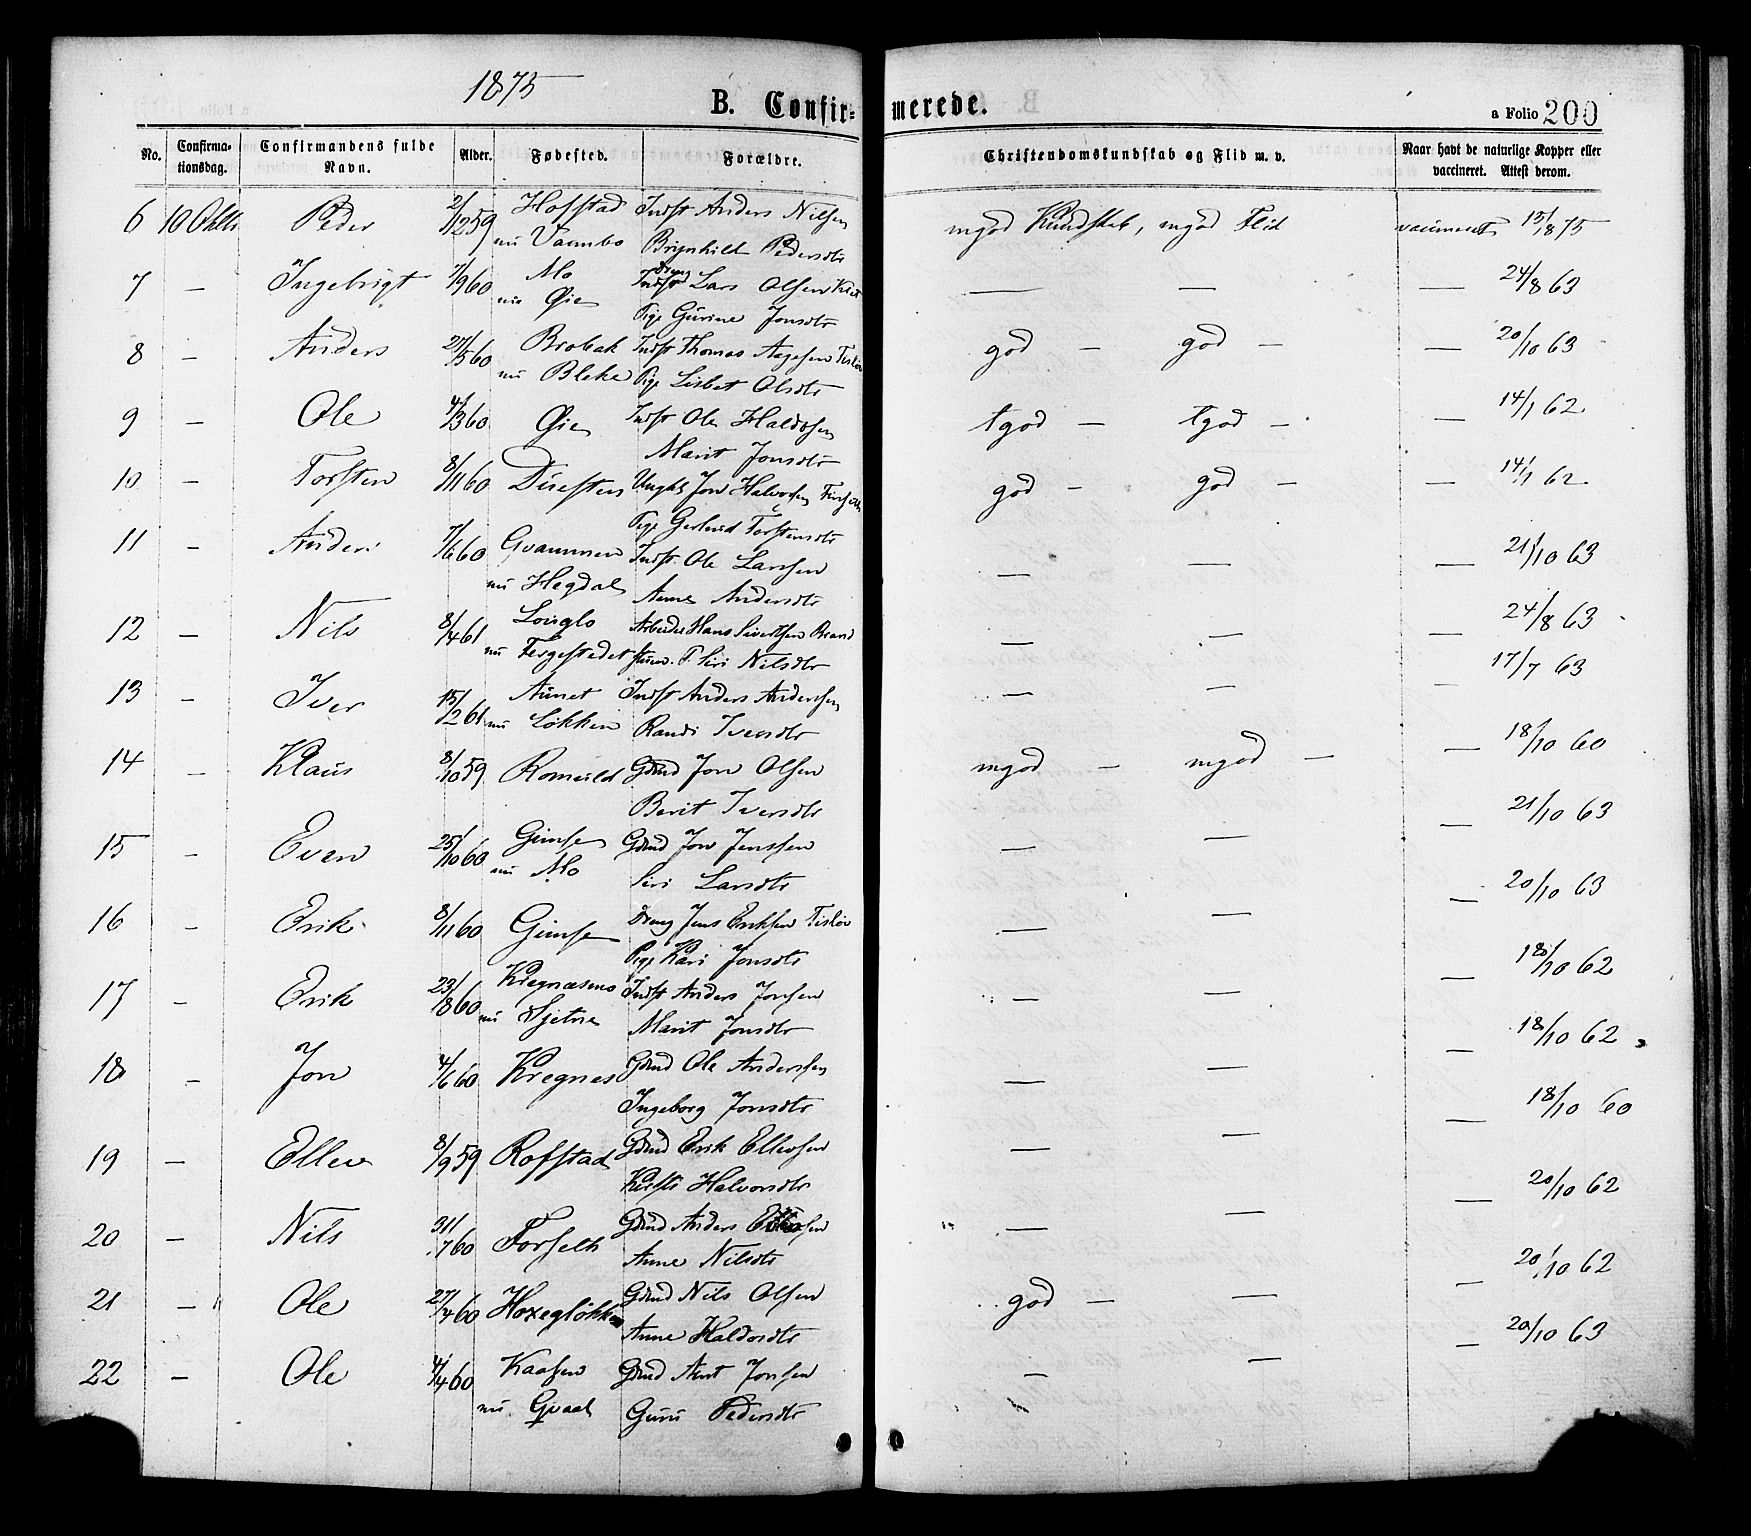 1875
B. Confir=merede.
a Folio 200
No. Confirmationsdag. Confirmandens fulde Navn. Alder. Fødested. Forældre. Christendomskundskab og Flid m. v. Naar havt de naturlige Kopper eller vaccineret. Attest derom.
6 10 Peder 2/12 59 Hofstad Indst Anders Nilsen mgod Kundskab, mgod Flid vaccineret 15/1 1875
nu Brynhild Pedersdtr
7 — Ingebrigt 7/9 60 Mo Lars Olsen — — — 24/8 63
nu Øie Pige Gurine Jonsdtr
8 — Anders 27/5 60 Brobak Indst Thomas Aagesen god — god — — 20/10 63
nu Bleke Pige Lisbet Olsdtr
9 — Ole 4/3 60 Øie Indst Ole Haldosen tgod — tgod — — 14/1 62
Marit Jonsdtr
10 — Torsten 8/11 60 Ungkl Jon Halvorsen god — god — — 14/1 62
Pige Gerlaud Torstensdtr
11 — Anders 7/6 60 Gvammen Indst. Ole Larssen — — — 21/10 63
nu Hegdal Anne Andersdtr
12 — Nils 8/4 61 Loiglo Arbeider Hans Sivertsen — — — 24/8 63
nu Fergestedet Siri Nilsdtr
13 — Iver 15/2 61 Aunet Indst Anders Anderssen — — — 17/7 63
nu Løkken Randi Iversdtr
14 — Klaus 8/10 59 Romuld Gdmd Jon Olsen mgod — mgod — — 18/10 60
Berit Iversdtr
15 — Even 25/10 60 Gimse Gdmd Jon Jenssen — — — 21/10 63
nu Mo Siri Larsdtr
16 — Erik 8/11 60 Gimse Dreng Jens Eriksen — — — 20/10 63
Pige Kari Jonsdtr
17 — Erik 23/8 60 Kregnæsmo Indst Anders Jonsen — — — 18/10 62
nu Sjetne Marit Jonsdtr
18 — Jon 4/6 60 Kregnes Gdmd Ole Anderssen — — — 18/10 62
Ingeborg Jonsdtr
19 — Ellev 8/9 59 Rofstad Gdmd Erik Ellevsen — — — 18/10 60
Kirsti Halvorsdtr
20 — Nils 31/7 60 Forseth Gdmd Anders — — — 20/10 62
Anne Nilsdtr
21 — Ole 27/4 60 Gdmd Nils Olsen god — — — 20/10 62
Anne Haldorsdtr
22 — Ole 4/4 60 Kaasen Gdmd Arnt Jonsen — — — 20/10 63
nu Qvaal Guru Pedersdtr